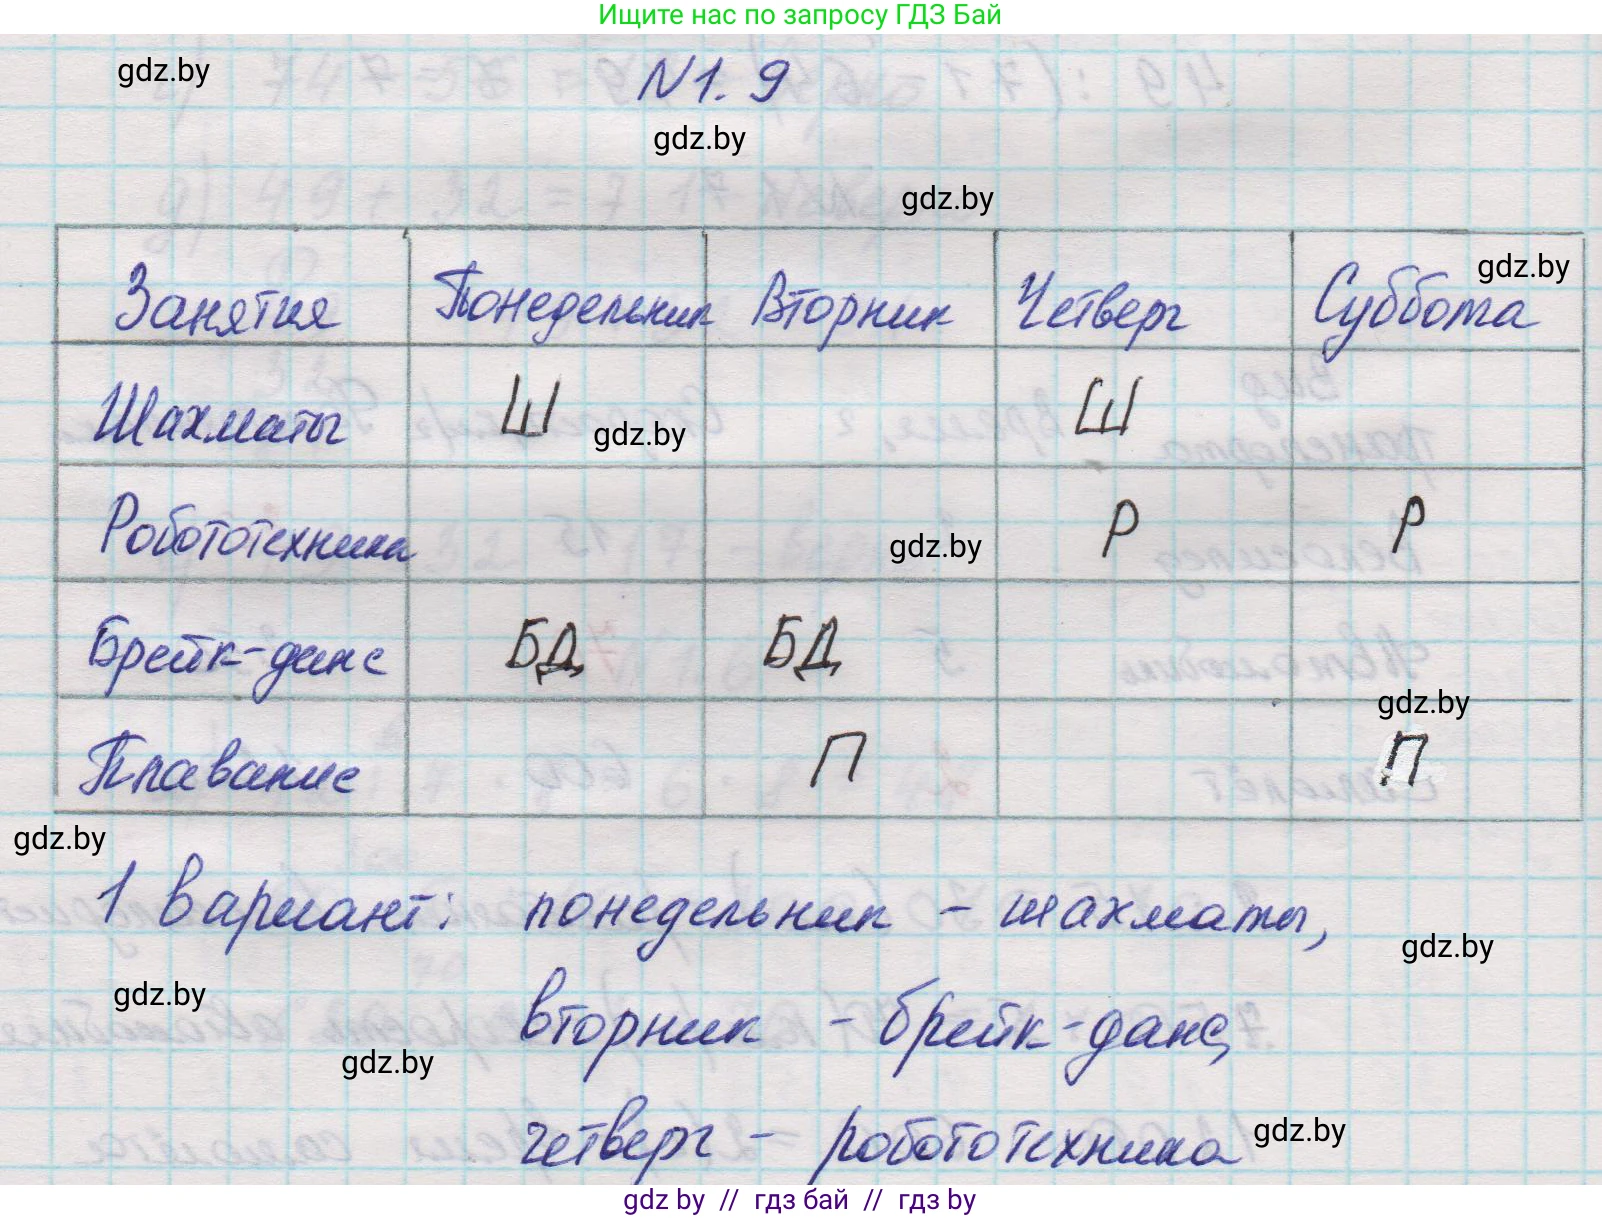 Ищите нас по запросу ГДЗ Бай
gdz.by
N1. 9
gdz.by
gdz.by
gdz.by
Занятия Понедельник Вторник Четверг Суббота
Шахматы Ш Ш
gdz.by
Робототехника Р Р
gdz.by
Брейк-данс БД БД
gdz.by
Плавание П П
gdz.by
1 вариант: понедельник - шахматы,
gdz.by
gdz.by
вторник - брейк-данс,
gdz.by
четверг - робототехника
gdz.by
gdz by // гдз бай // gdz by